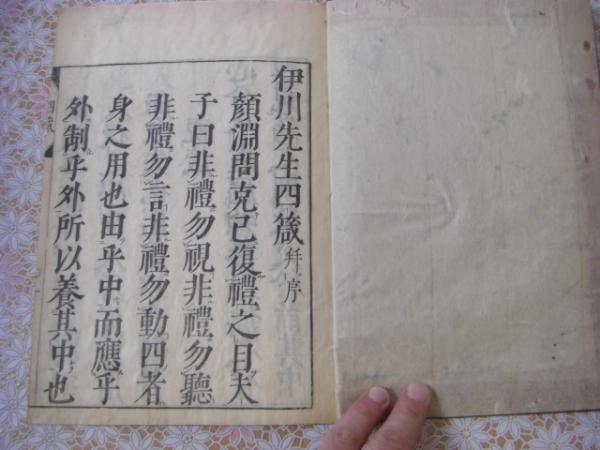 伊川先生四箴并序
顏淵問克己復禮之目夫
子曰非禮勿視非禮勿聽
非禮勿言非禮勿動四者
身之用也由乎中而應乎
外制乎外所以養其中也
四箴